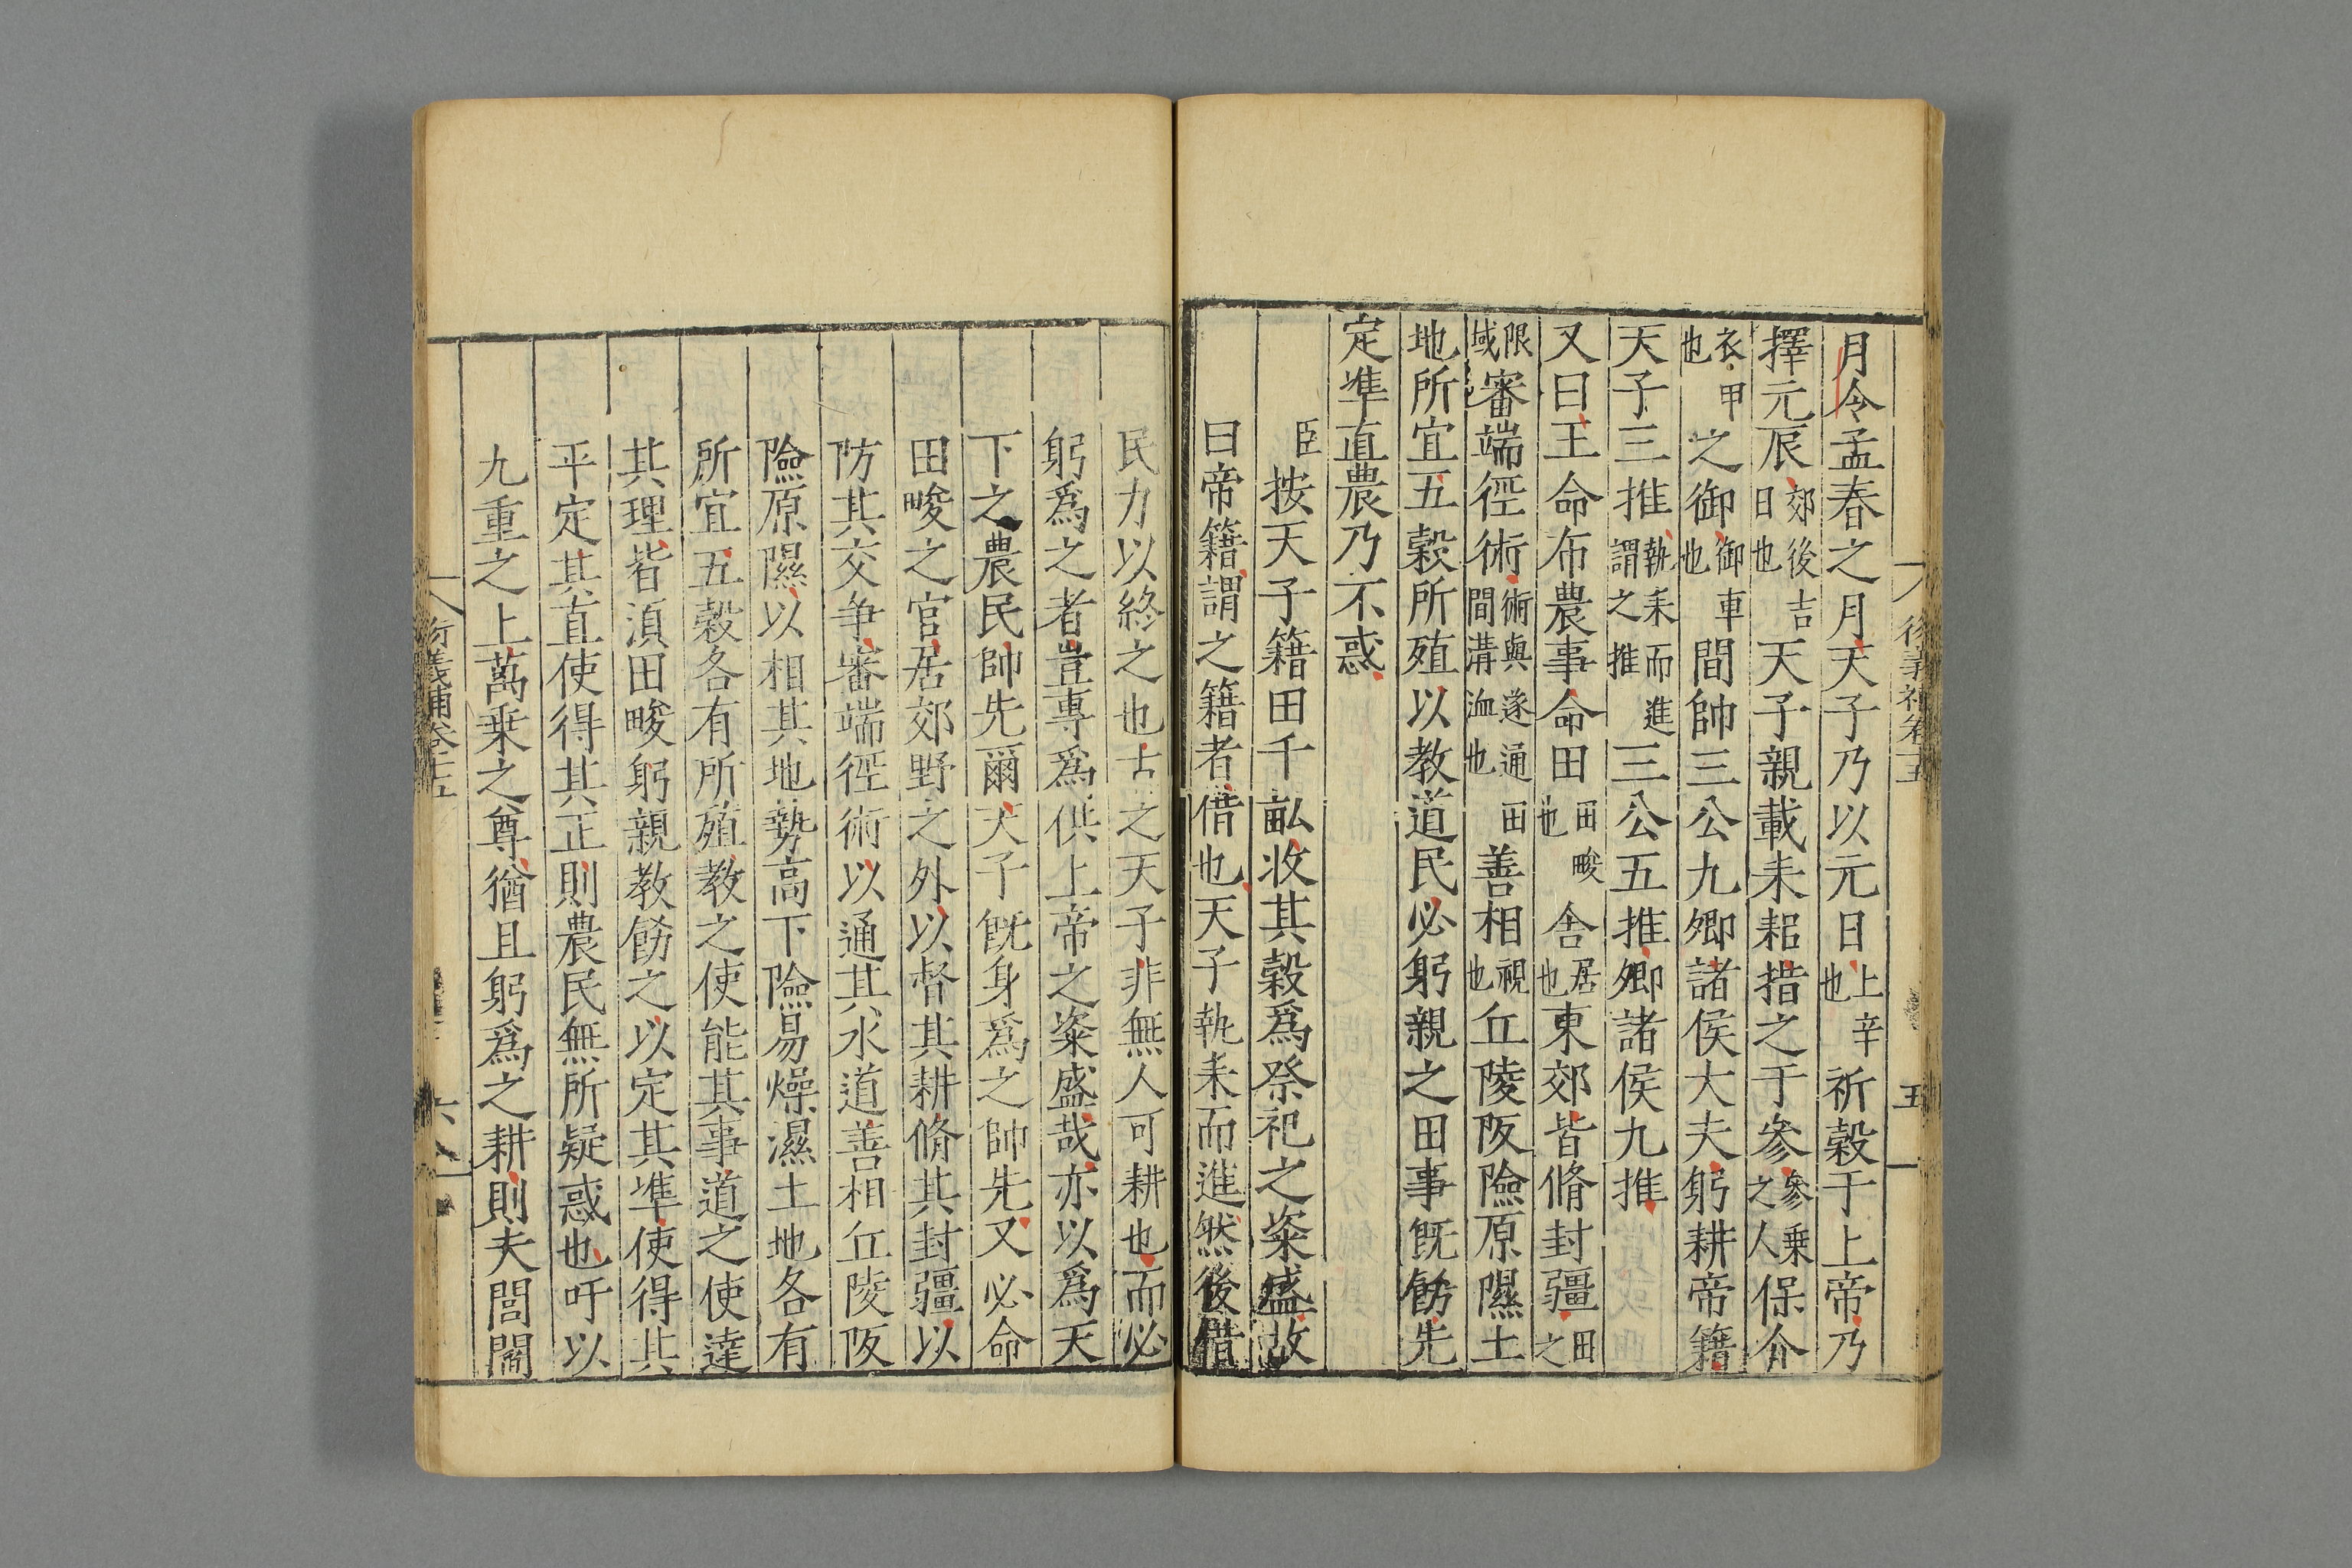 月令孟春之月天子乃以元日上辛也祈穀于上帝乃
擇元辰郊後吉日也天子親載耒耜措之于參參乗之人保介
衣甲也之御御車也間帥三公九卿諸侯大夫躬耕帝籍
天子三推執耒而進謂之推三公五推卿諸侯九推
又曰王命布農事命田田畯也舍居也東郊皆脩封疆田之
限域審端徑術術與遂通田間溝洫也善相視也丘陵阪險原隰土
地所宜五穀所殖以教道民必躬親之田事既飭先
定準直農乃不惑
臣按天子籍田千畝收其穀爲祭祀之粢盛故
曰帝籍謂之籍者借也天子執耒而進然後借
民力以終之也古之天子非無人可耕也而必
躬爲之者豈專爲供上帝之粢盛哉亦以爲天
下之農民帥先爾天子既身爲之帥先又必命
田畯之官居郊野之外以督其耕脩其封疆以
防其交争審端徑術以通其水道善相丘陵阪
險原隰以相其地勢高下險易燥濕土地各有
所宜五穀各有所殖教之使能其事道之使達
其理皆湏田畯躬親教飭之以定其準使得其
平定其直使得其正則農民無所疑惑也吁以
九重之上萬乗之尊猶且躬爲之耕則夫閭閻
衍義補卷十五
六
五